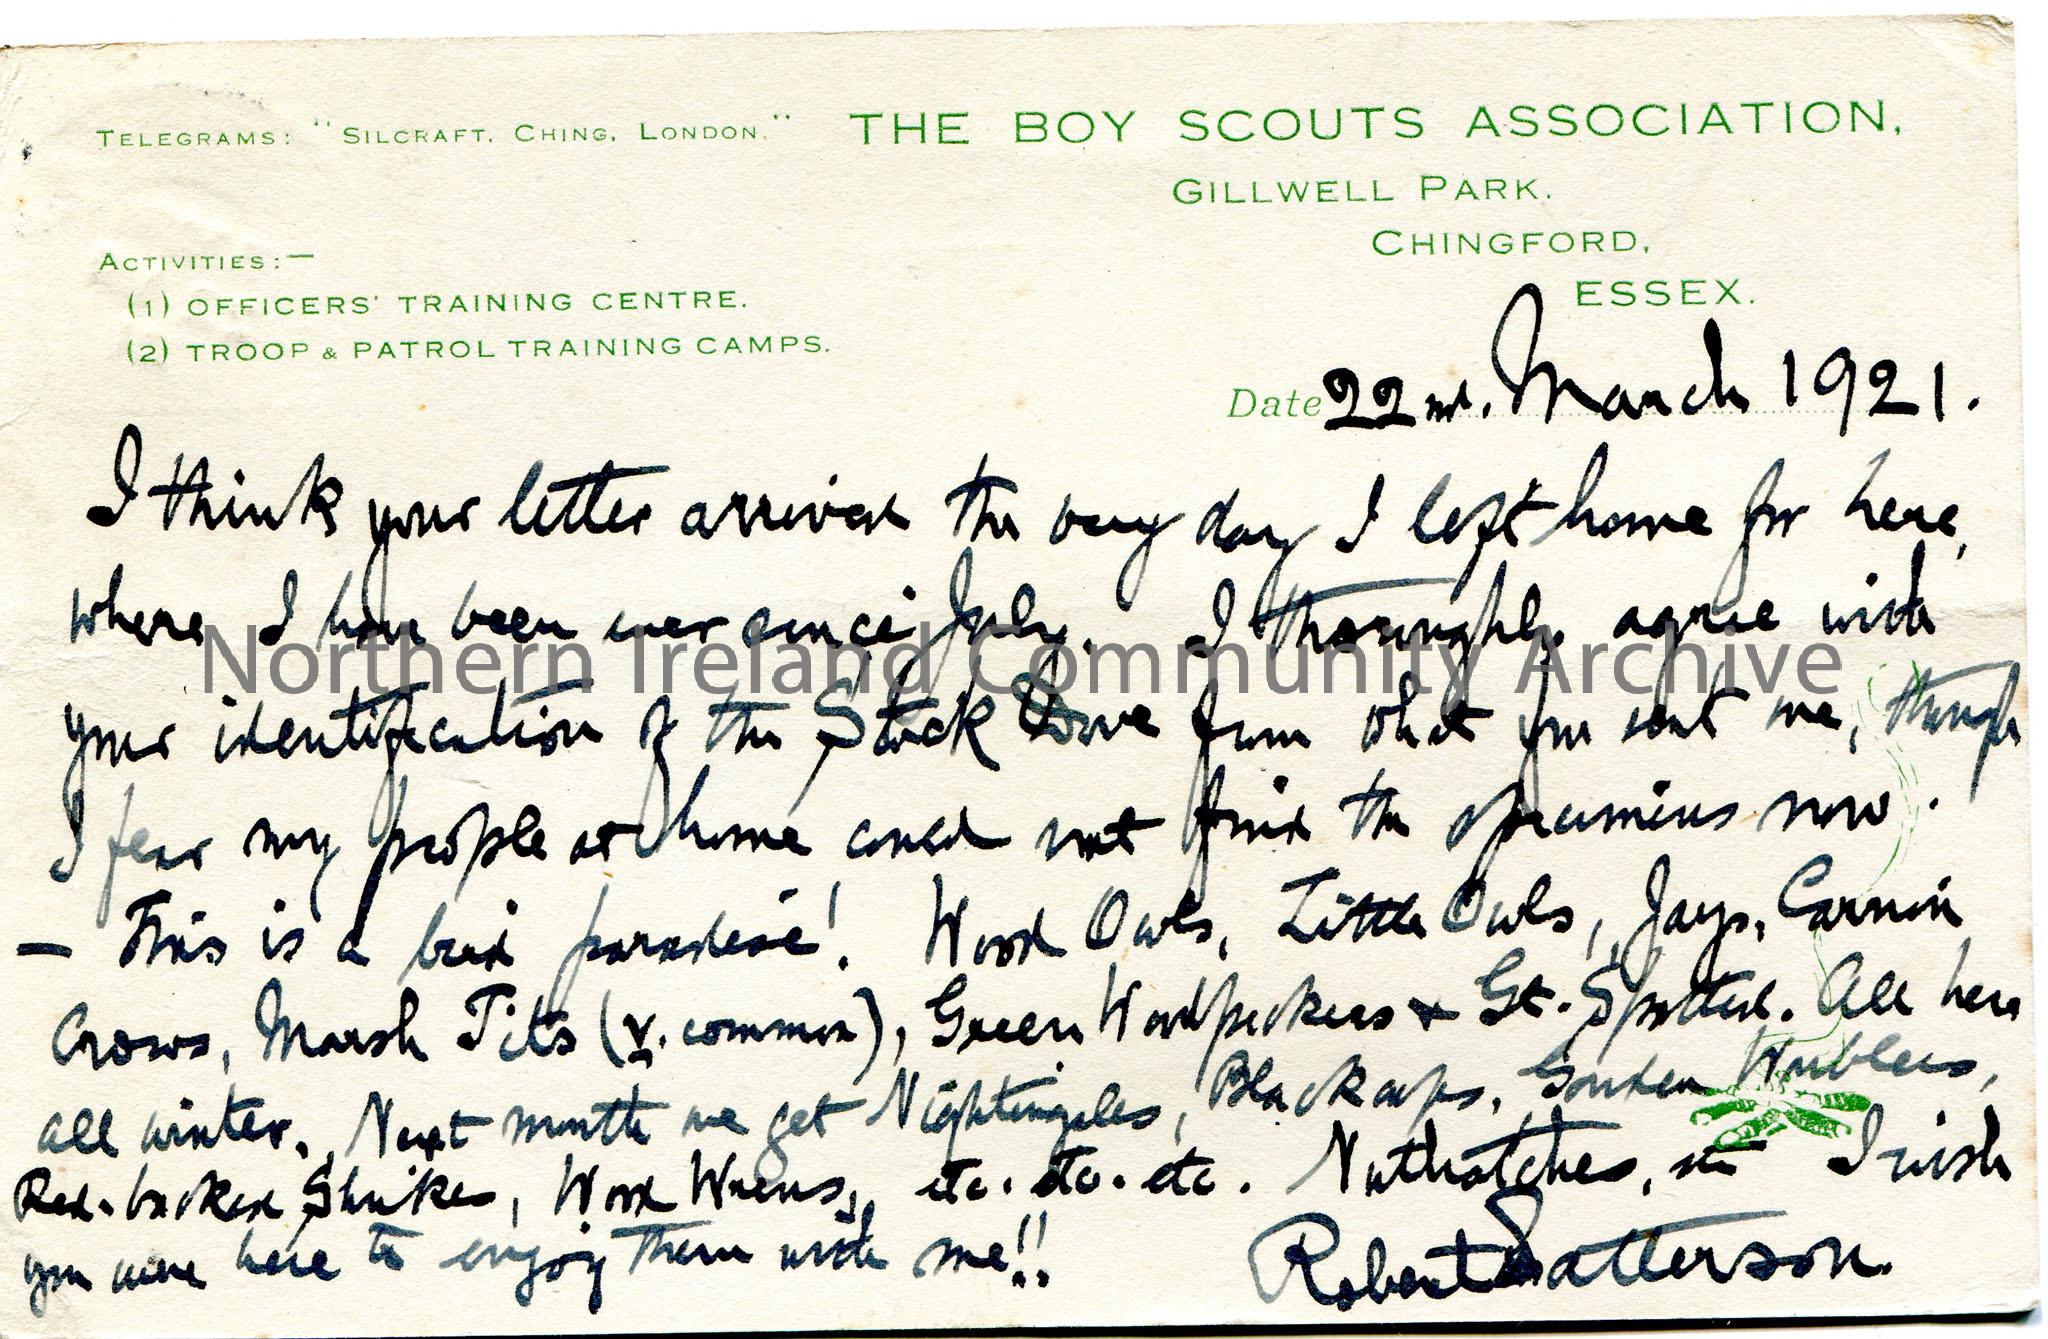 TELEGRAMS: "SILCRAFT, CHING, LONDON."
THE BOY SCOUTS ASSOCIATION,
GILLWELL PARK.
CHINGFORD,
ESSEX.
ACTIVITIES:—
(1) OFFICERS' TRAINING CENTRE.
(2) TROOP & PATROL TRAINING CAMPS.
Date 22nd. March 1921.
I think your letter arrived the very day I left home for here,
where I have been ever since July. I thoroughly agree with
your identification of the Stock Dove from what you sent me, though
I fear my people at home could not find the specimens now.
— This is a bird paradise! Wood Owls, Little Owls, Jays, Carrion
Crows, Marsh Tits (v. common), Green Woodpeckers & Gt. Spotted. All here
all winter. Next month we get Nightingales, Blackcaps, Garden Warblers,
Red-backed Shrikes, Wood Wrens, etc. etc. etc. Nuthatches, I wish
you were here to enjoy them with me!!
Robert Patterson.
Northern Ireland Community Archive